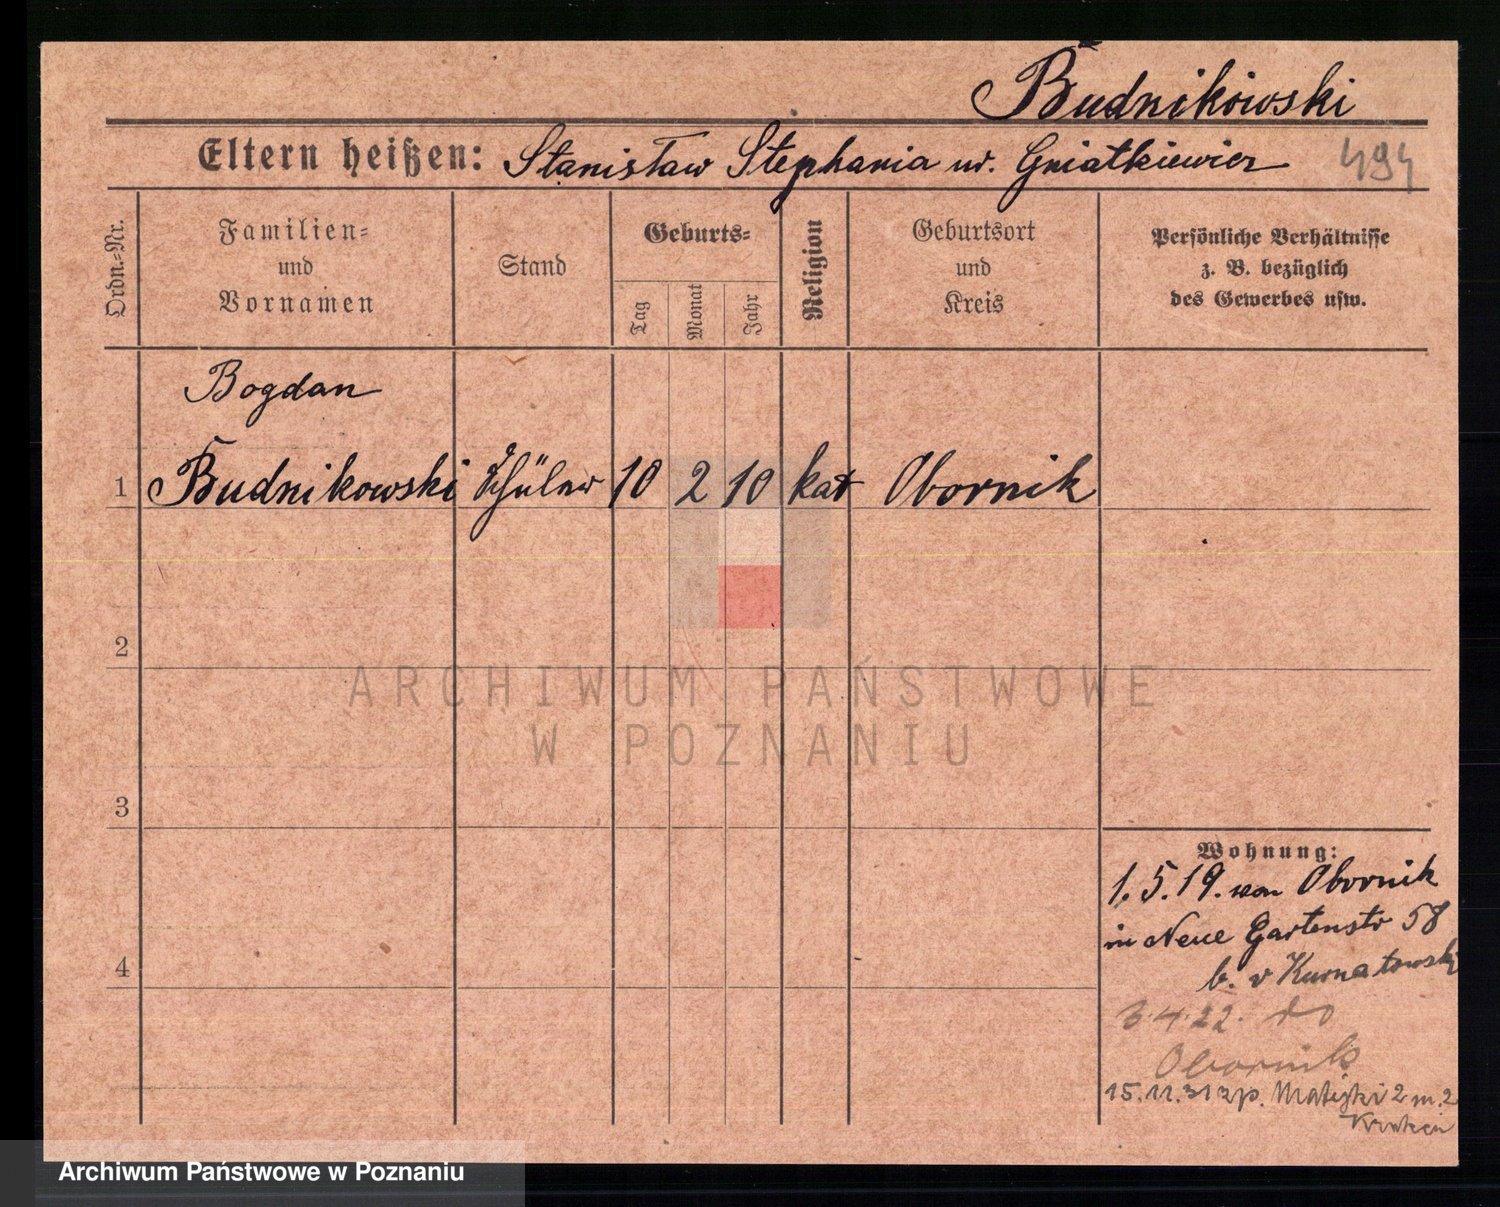 Budnikowski
Eltern heißen: Stanisław Stephania ur. Gniatkiewicz 494
Ordn.-Nr.
Familien-
und
Vornamen
Stand
Geburts-
Tag
Monat
Jahr
Religion
Geburtsort
und
Kreis
Persönliche Verhältnisse
z. B. bezüglich
des Gewerbes usw.
Bogdan
1 Budnikowski Schüler 10 2 10 kat Obornik
2
3
4
Wohnung:
1.5.19. von Obornik
in Neue Gartenstr 58
b. v Kurnatowski
3.4.22. do
Obornik
15.11.31 zp. Matejki 2 m. 2
ARCHIWUM PAŃSTWOWE
W POZNANIU
Archiwum Państwowe w Poznaniu